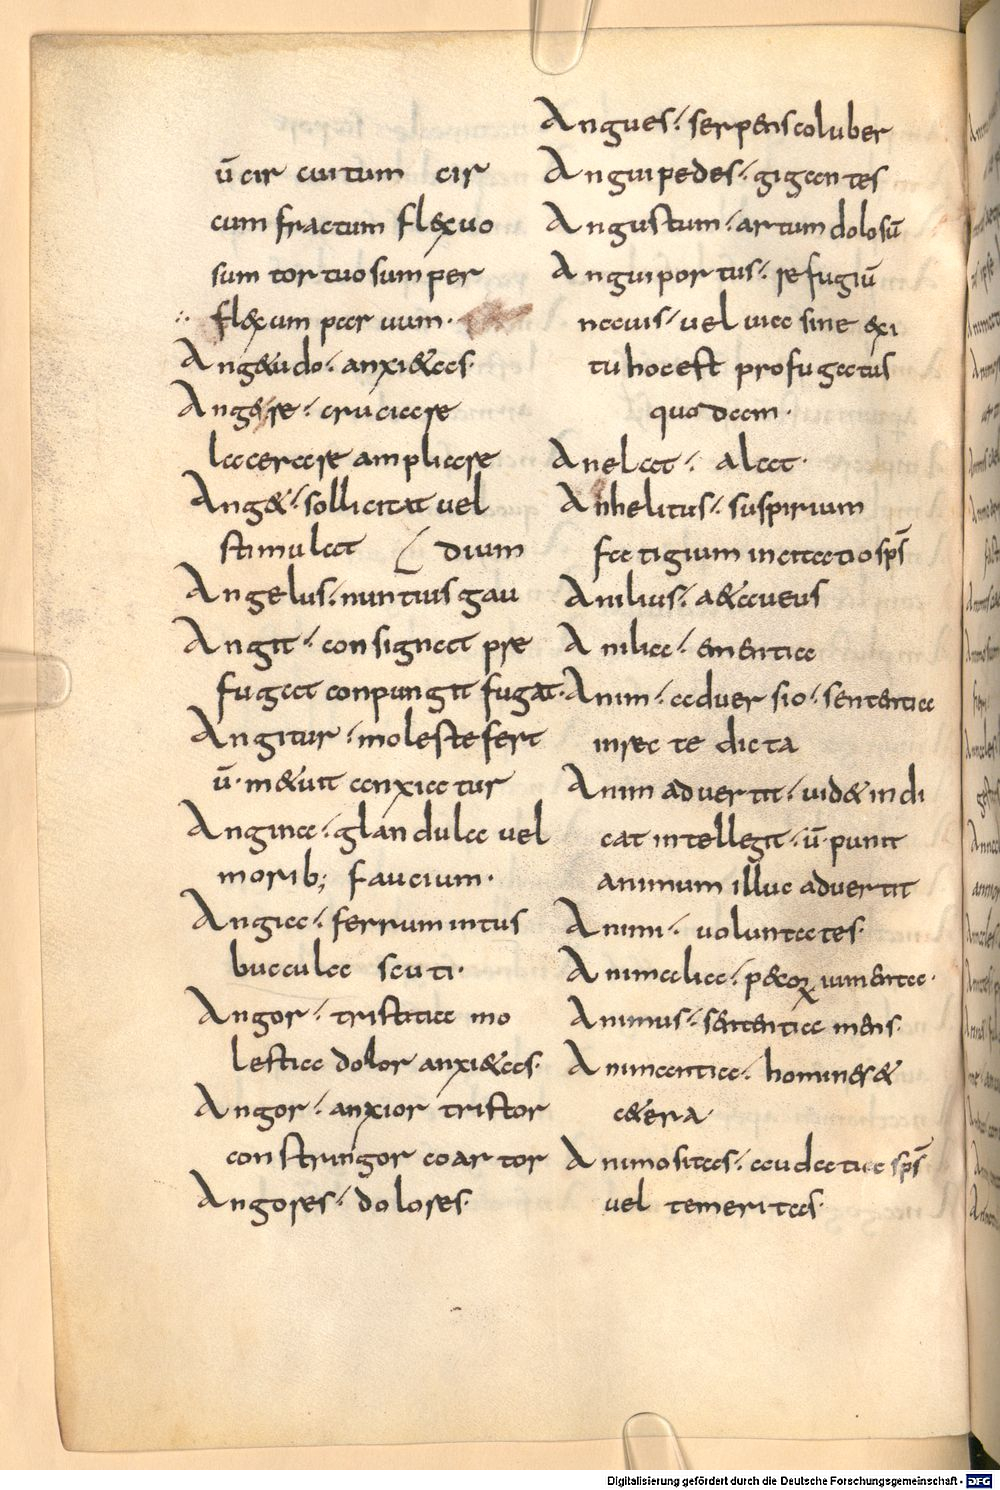 ū cir cuitum cir
cum fractum flexuo
sum tortuosum per
flexum par uum.
Angetudo. anxietas.
Angere. cruciare
lacerare ampliare
Anget. sollicitat uel
stimulat dium
Angelus. nuntius gau
Angit. consignat pre
fugat conpungit fugat.
Angitur. moleste fert
ū. metuit anxiatur
Angina. glandula uel
morib; faucium.
Angia. ferrum intus
buccula scuti.
Angor. tristitia mo
lestia dolor anxietas.
Angor. anxior tristor
constringor coartor
Angores. dolores.
Angues. serpens coluber
Anguipedes. gigantes
Angustum. artum dolosū
Anguiportus. refugiū
nauis. uel uia sine exi
tu hoc est profugatus
quodam.
Anelat. alat.
Anhelitus. suspirium
fatigium incitatio sps̄
Anilius. aetaueus
Anilia. ementia
Anim. aduersio. sententia
in re te dicta
Animaduertit. uidet indi
cat intellegit. ū. punit
animum illuc aduertit
Animi. uoluntates.
Animalia. pecoꝝ iumenta.
Animus. sententia mens.
Animantia. homines &
cetera
Animositas. audatia sps̄
uel temeritas.
Digitalisierung gefördert durch die Deutsche Forschungsgemeinschaft - DFG